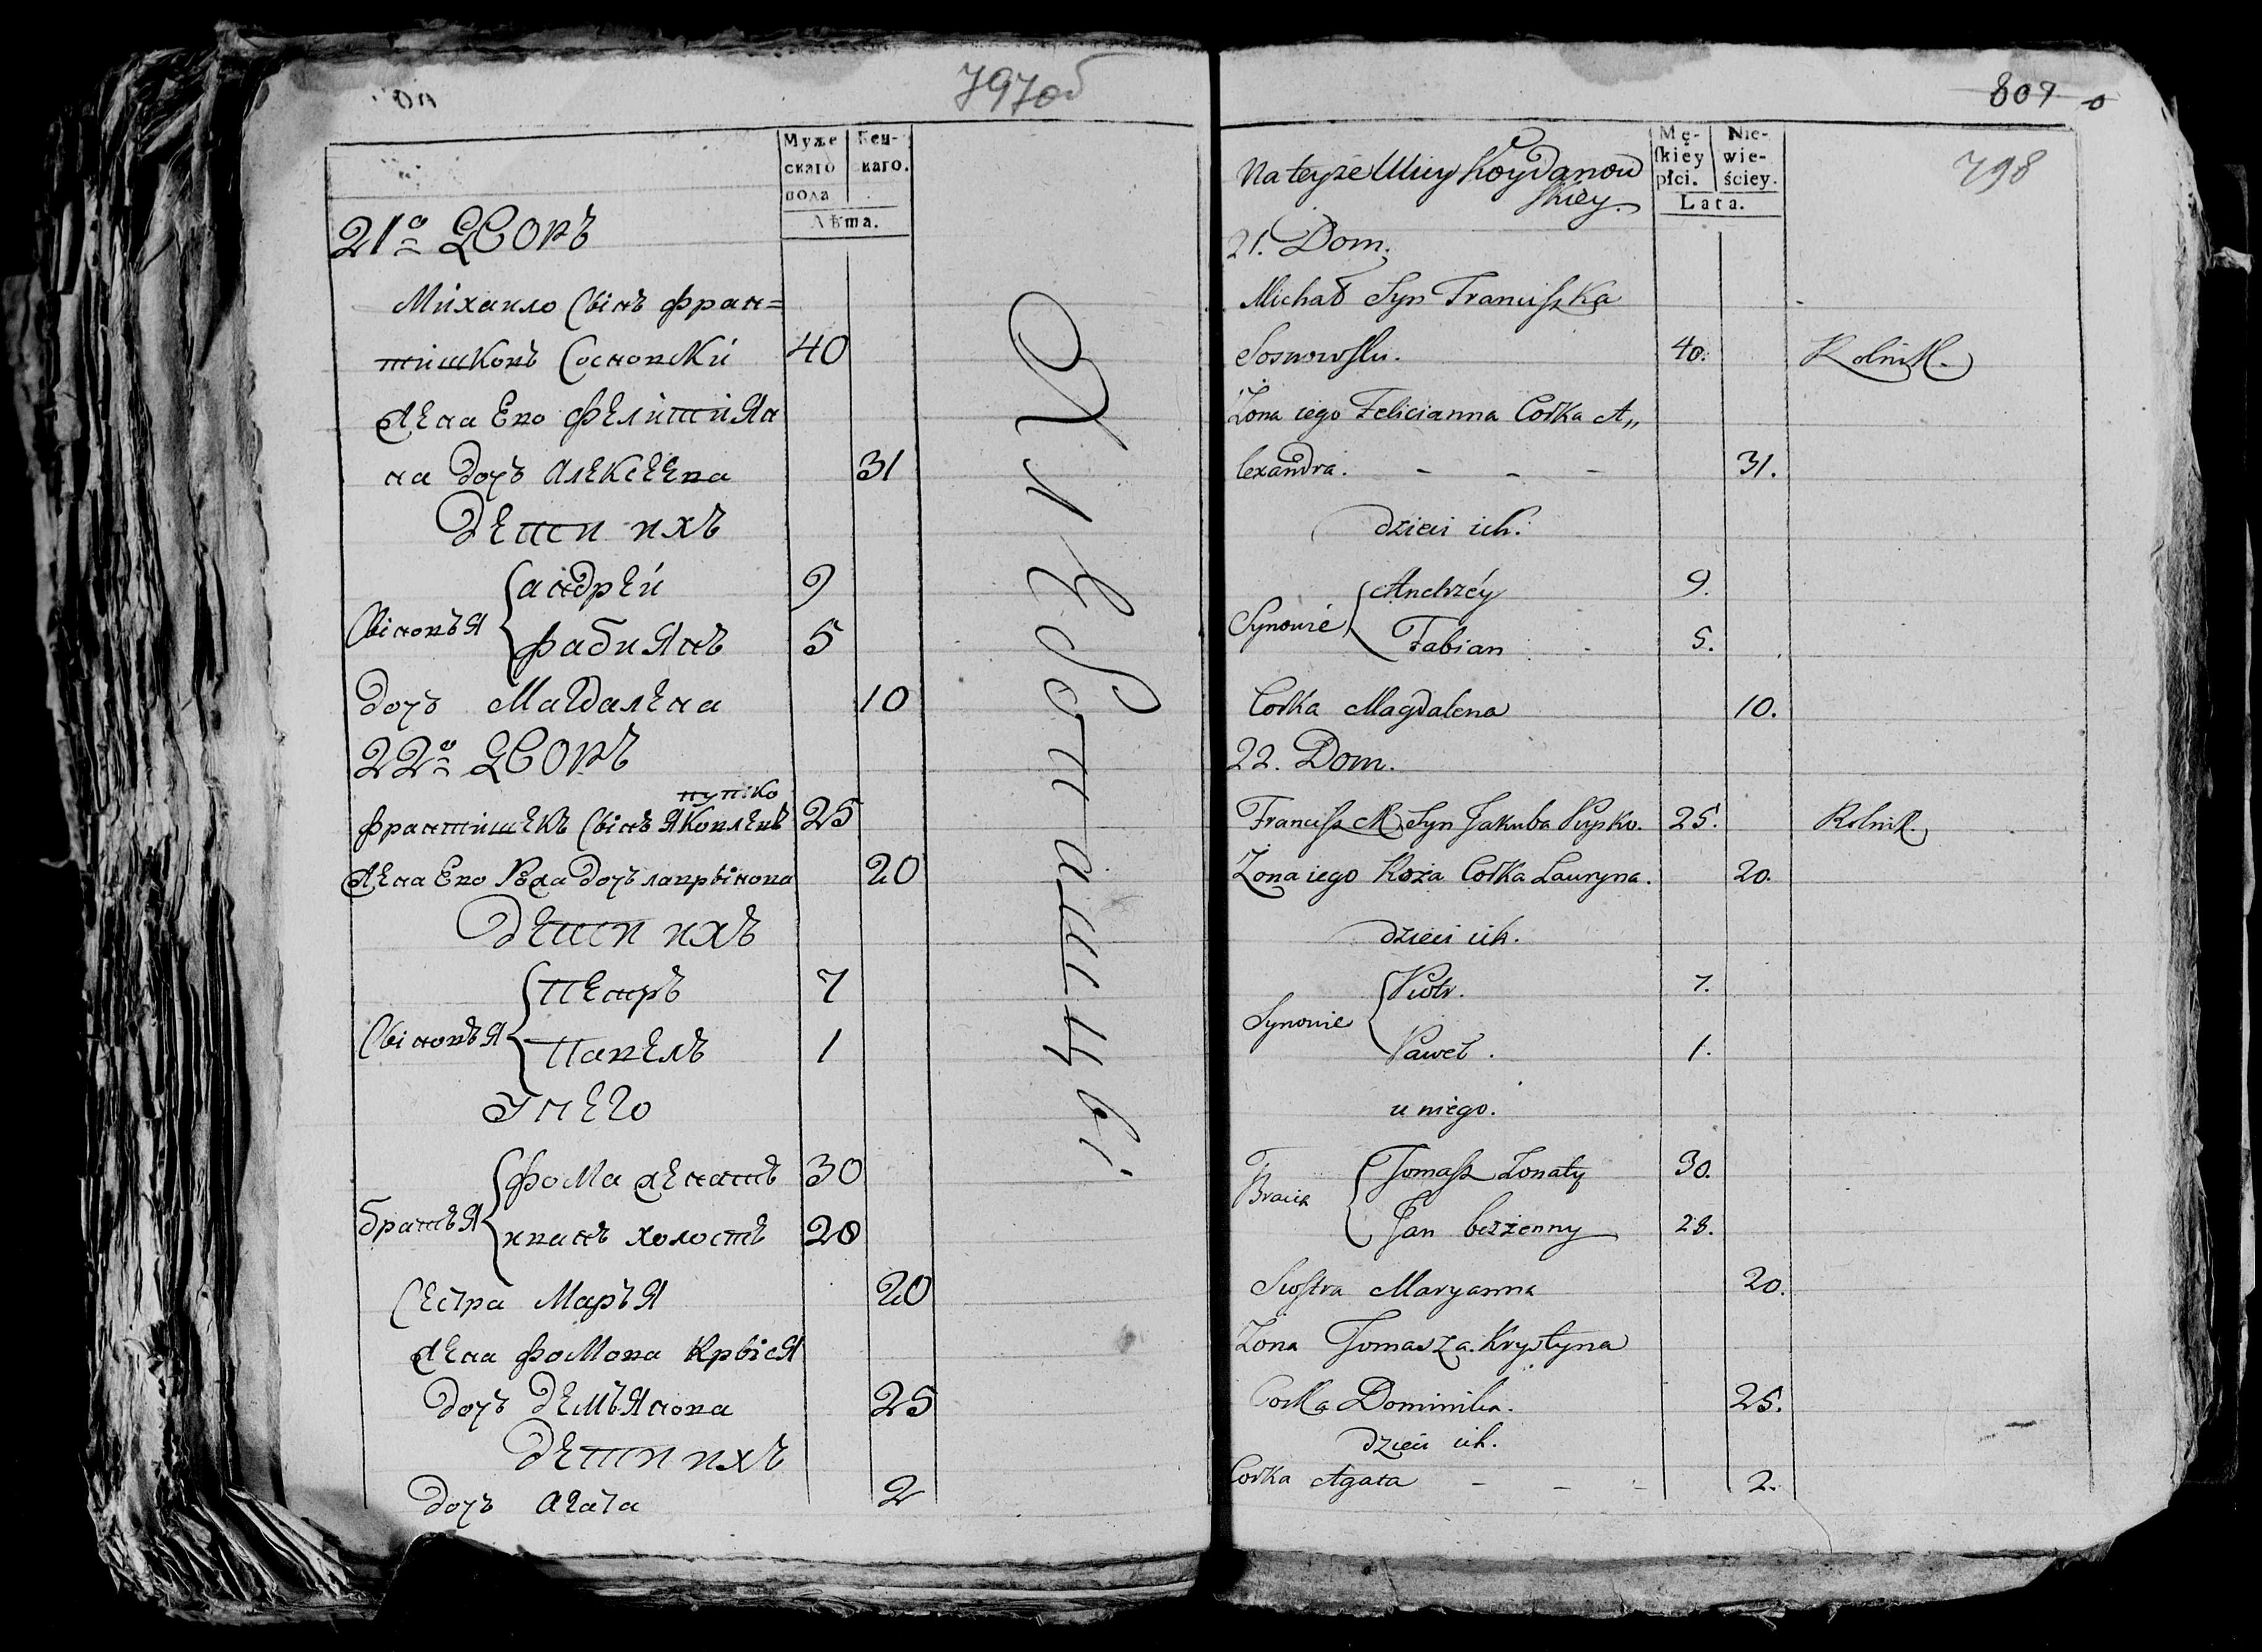 797об
Муже
скаго
пола
Жен-
скаго.
Лѣта.
21о Дворъ
Михаило Сынъ Фран=
тишковъ Сосновски 40
Жена Его Фелитиѧ
на дочъ Алексеева 31
Дети ихъ
Сыновъѧ { Андрей 9
Фабиѧнъ 5
Дочъ Магдалена 10
22о Дворъ
Пупко
Франтишекъ Сынъ Ѧковлевъ 25
Жена Его Рожа дочъ лаврынова 20
Дети ихъ
Сыновъѧ { Петръ 7
Павелъ 1
У него
Братъѧ { Фома женатъ 30
иванъ холостъ 28
Сестра Маръѧ 20
Жена Фомова Крысѧ
Дочъ Демъѧнова 25
Дети ихъ
Дочъ Агата 2
809
798
Na teyże Ulicy Koydanow
skiey.
Mę-
skiéy
płci.
Nie-
wie-
ściey.
Lata.
21. Dom.
Michał Syn Franciszka
Sosnowski. 40. Rolnik.
Żona iego Felicianna Corka A„
lexandra. - - - 31.
dzieci ich.
Synowie { Andrzéy 9.
Fabian 5.
Corka Magdalena 10.
22. Dom.
Franciszek Syn Jakuba Pupko. 25. Rolnik.
Żona iego Roża Corka Lauryna. 20.
dzieci ich.
Synowie { Piotr. 7.
Paweł. 1.
u niego.
Bracia { Tomasz Żonaty 30.
Jan beżżenny 28.
Siostra Maryanna 20.
Żona Tomasza Krystyna
Corka Dominika. 25.
dzieci ich.
Corka Agata - - - 2.